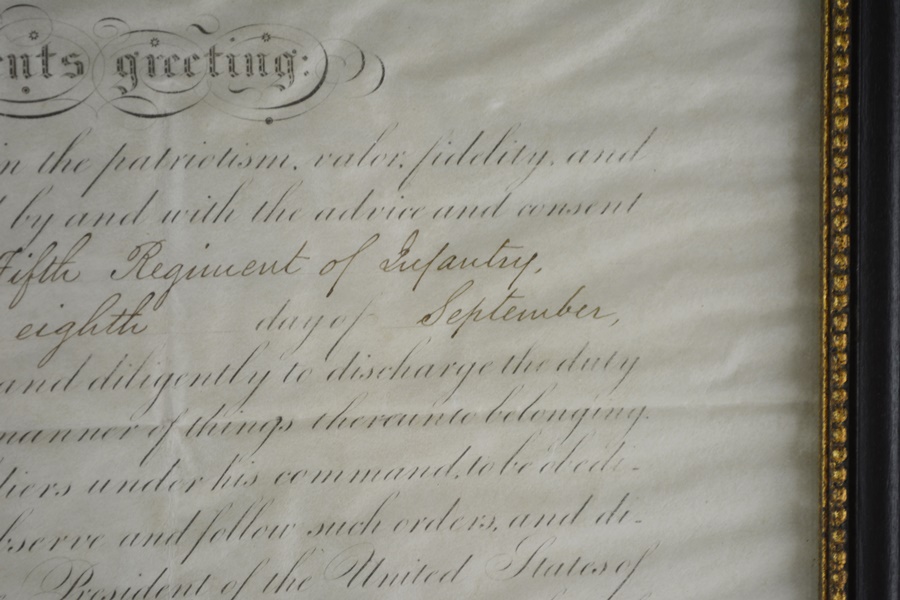 nts greeting:
in the patriotism, valor, fidelity, and
by and with the advice and consent
Fifth Regiment of Infantry,
eighth day of September,
and diligently to discharge the duty
manner of things thereunto belonging.
diers under his command, to be obedi-
bserve and follow such orders, and di-
President of the United States of